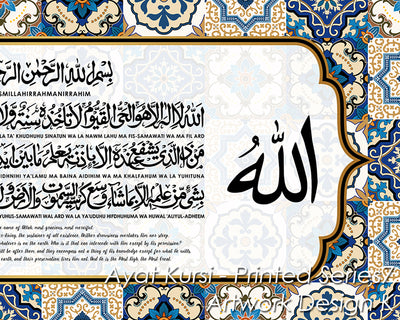 بِسْمِ اللهِ الرَّحْمٰنِ الرَّ
SMILLAHIRRAHMANIRRAHIM
اللهُ لَا إِلَهَ إِلَّا هُوَ الْحَيُّ الْقَيُّومُ لَا تَأْخُذُهُ سِنَةٌ وَلَا
LA TA' KHUDHUHU SINATUN WA LA NAWM LAHU MA FIS-SAMAWATI WA MA FIL ARD
مَن ذَا الَّذِي يَشْفَعُ عِندَهُ إِلَّا بِإِذْنِهِ يَعْلَمُ مَا بَيْنَ
IDHNIHI YA'LAMU MA BAINA AIDIHIM WA MA KHALFAHUM WA LA YUHITUNA
بِشَيْءٍ مِّنْ عِلْمِهِ إِلَّا بِمَا شَاءَ وَسِعَ كُرْسِيُّهُ السَّمٰوٰتِ وَالْأَرْضَ
YUHUS-SAMAWATI WAL ARD WA LA YA'UDUHU HIFDHUHUMA WA HUWAL 'ALIYUL-ADHEEM
name of Allah, most gracious, most merciful.
living, the sustainer of all existence. Neither drowsiness overtakes Him nor sleep.
whatever is on the earth. Who is it that can intercede with Him except by His permission?
will be after them, and they encompass not a thing of His knowledge except for what He wills.
earth, and their preservation tires Him not. And He is the Most High, the Most Great.
الله
Ayat Kursi - Printed Series 7
Artwork Design K